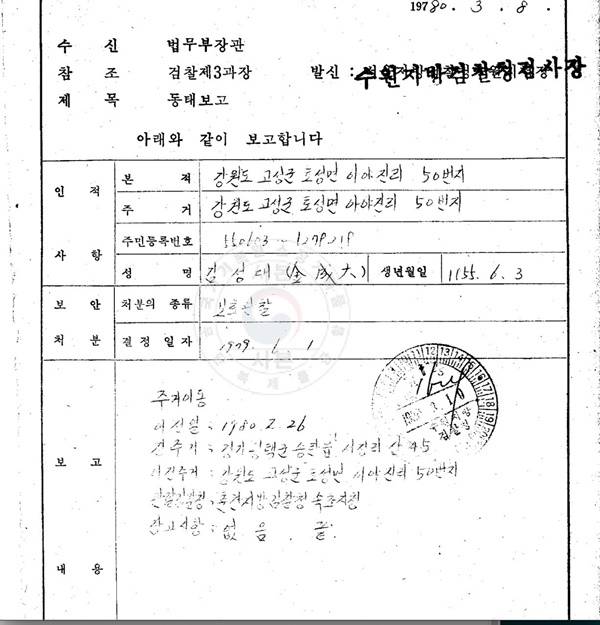 1980. 3. 8.
수 신 법무부장관
참 조 검찰제3과장 발신 : 수원지방검찰청검사장
제 목 동태보고
아래와 같이 보고합니다
인 적 사 항
본 적 강원도 고성군 토성면 아야진리 50번지
주 거 강원도 고성군 토성면 아야진리 50번지
주민등록번호
성 명 김성대 (金成大) 생년월일 1955. 6. 3
보 안 처 분
처분의 종류 보호관찰
결정 일자 1979. 1. 1
보 고 내 용
주거이동
이전일 : 1980. 2. 26
전주거 : 경기 평택군 송탄읍 산 45
이전주거 : 강원도 고성군 토성면 아야진리 50번지
관할검찰청 : 춘천지방검찰청 속초지청
참고사항 : 없음. 끝.